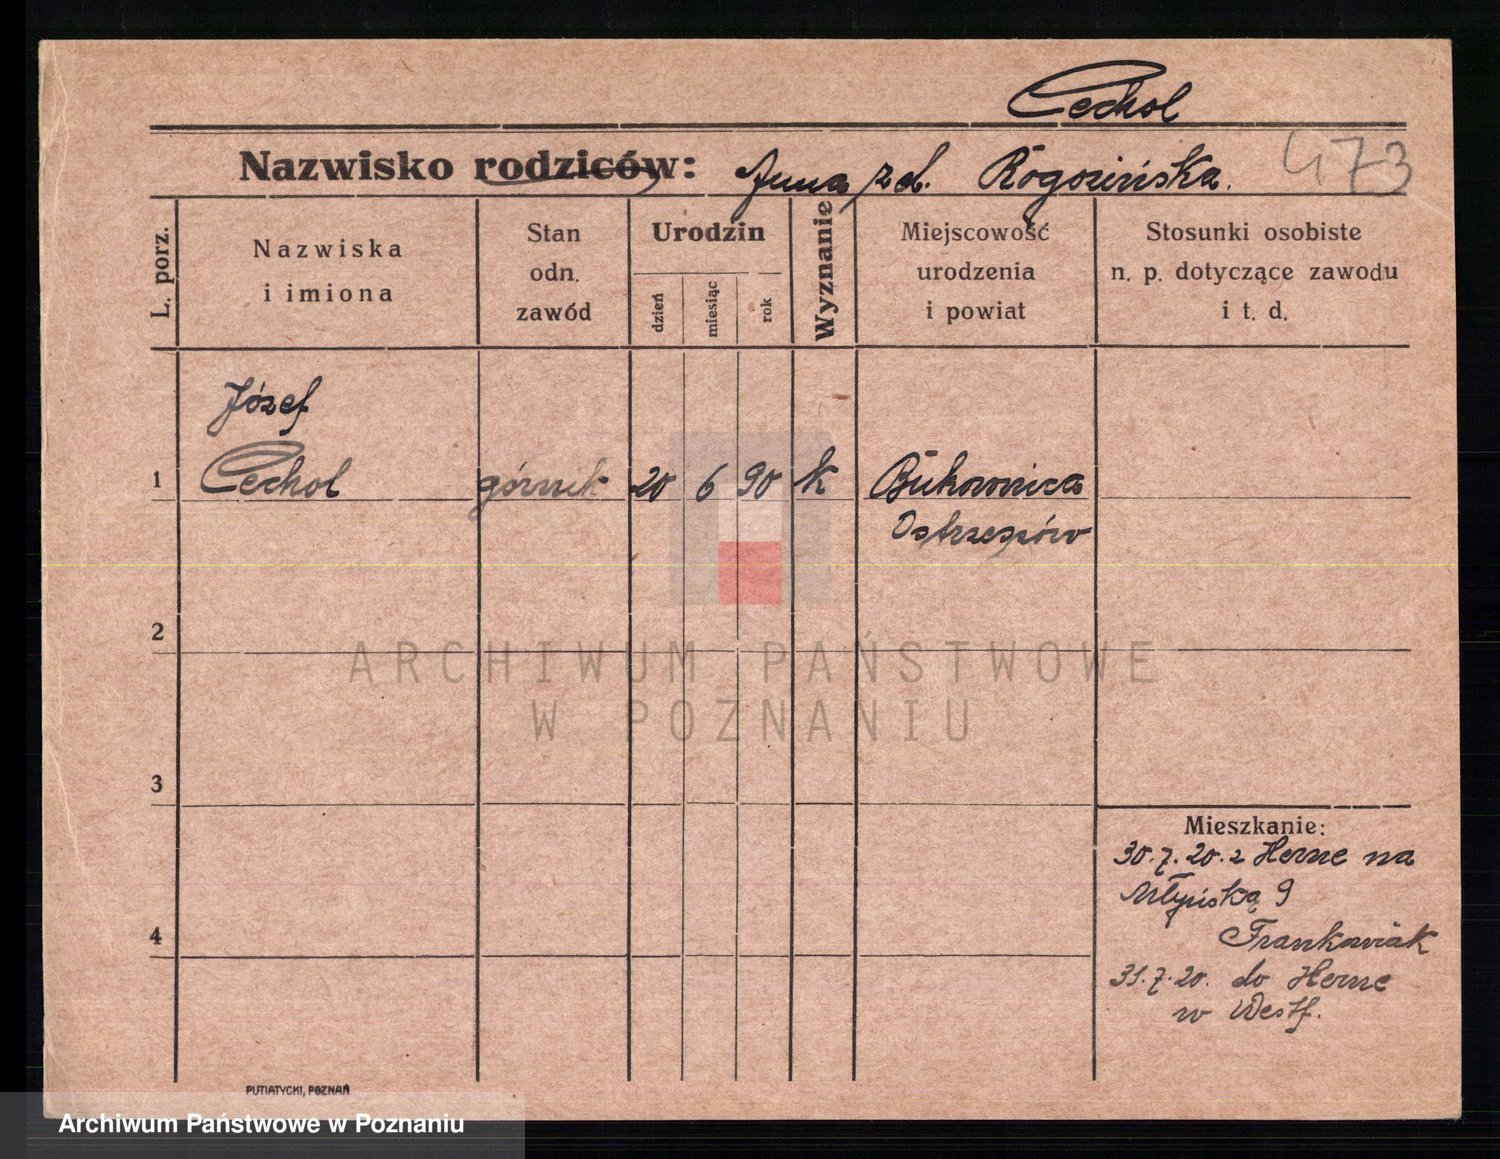 Cechol
Nazwisko rodziców: Anna zd. Rogozińska. 473
L. porz.
Nazwiska
i imiona
Stan
odn.
zawód
Urodzin
dzień
miesiąc
rok
Wyznanie
Miejscowość
urodzenia
i powiat
Stosunki osobiste
n. p. dotyczące zawodu
i t. d.
Józef
1 Cechol górnik 20 6 90 k Bukownica
Ostrzeszów
2
3
4
Mieszkanie:
30.7.20. z Herne na
Młyńską 9
Frankowiak
31.7.20. do Herne
w Westf.
PUTIATYCKI, POZNAŃ
ARCHIWUM PAŃSTWOWE
W POZNANIU
Archiwum Państwowe w Poznaniu